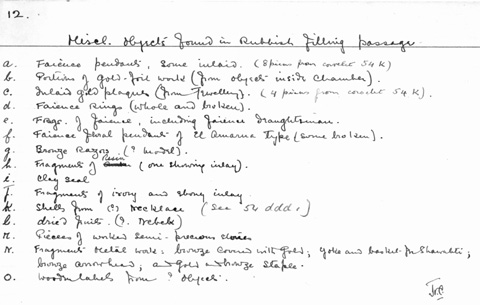 12.
Miscl. objects found in Rubbish filling passage
a. Faience pendants, some inlaid. (8 pieces from corselet 54 K)
b. Portions of gold-foil work (from objects inside chamber).
c. Inlaid gold plaques (from Jewellery). (4 pieces from corselet 54 K).
d. Faience Rings (whole and broken).
e. Frags. of faience, including faience draughtsman.
f. Faience floral pendants of El Amarna Type (some broken).
g. Bronze Razors (? model).
h. Fragments of Resin (one showing inlay).
i. Clay seal
j. Fragments of ivory and ebony inlay
k. Shells from (?) Necklace (See 54 ddd)
l. dried fruits. (?. Nebek)
m. Pieces of worked semi-precious stones
n. Fragments Metal work: bronze covered with Gold; yoke and basket for Shawabti;
bronze arrowhead; and gold and bronze staple.
o. Wooden labels from ? objects.